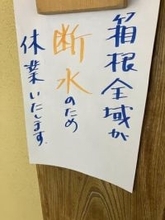 箱根全域が
断水のため
休業いたします.